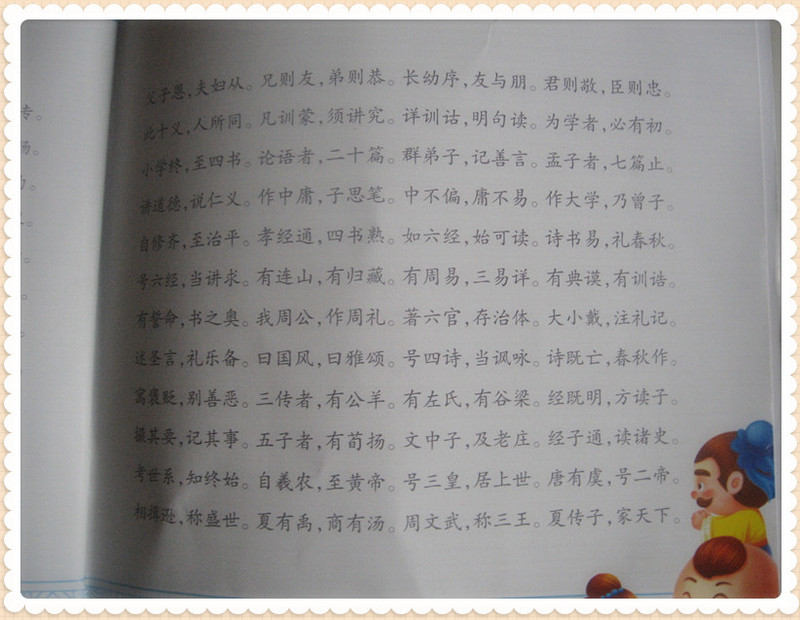 专。
扬。
父子恩,夫妇从。兄则友,弟则恭。长幼序,友与朋。君则敬,臣则忠。
此十义,人所同。凡训蒙,须讲究。详训诂,明句读。为学者,必有初。
小学终,至四书。论语者,二十篇。群弟子,记善言。孟子者,七篇止。
讲道德,说仁义。作中庸,子思笔。中不偏,庸不易。作大学,乃曾子。
自修齐,至治平。孝经通,四书熟。如六经,始可读。诗书易,礼春秋。
号六经,当讲求。有连山,有归藏。有周易,三易详。有典谟,有训诰。
有誓命,书之奥。我周公,作周礼。著六官,存治体。大小戴,注礼记。
述圣言,礼乐备。曰国风,曰雅颂。号四诗,当讽咏。诗既亡,春秋作。
寓褒贬,别善恶。三传者,有公羊。有左氏,有谷梁。经既明,方读子。
撮其要,记其事。五子者,有荀扬。文中子,及老庄。经子通,读诸史。
考世系,知终始。自羲农,至黄帝。号三皇,居上世。唐有虞,号二帝。
相揖逊,称盛世。夏有禹,商有汤。周文武,称三王。夏传子,家天下。